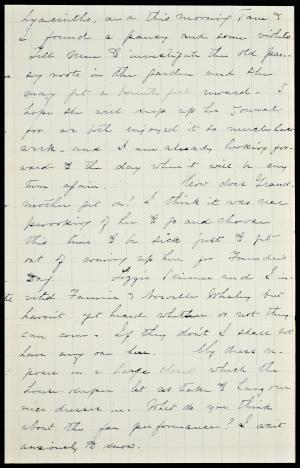 hyacinths, and this morning Fan &
I found a pansy and some violets
Tell Nene to investigate the old pan-
sy roots in the garden and she
may get a bountiful reward. I
hope she will keep up her Journal
for we both enjoyed it so much last
week. and I am already looking for-
ward to the day when it will be my
turn again. How does Grand-
mother get on? I think it was real
provoking of her to go and choose
this time to be sick just to get
out of coming up here for Founder's
Day Lizzie and I in-
vited Fannie & Whaley but
haven't yet heard whether or not they
can come. If they don't I shall not
have any one here. My dress re-
poses in a large closet which the
house keeper let us take to hang our
nice dresses in. What do you think
about the fan performance? I wait
anxiously to know.